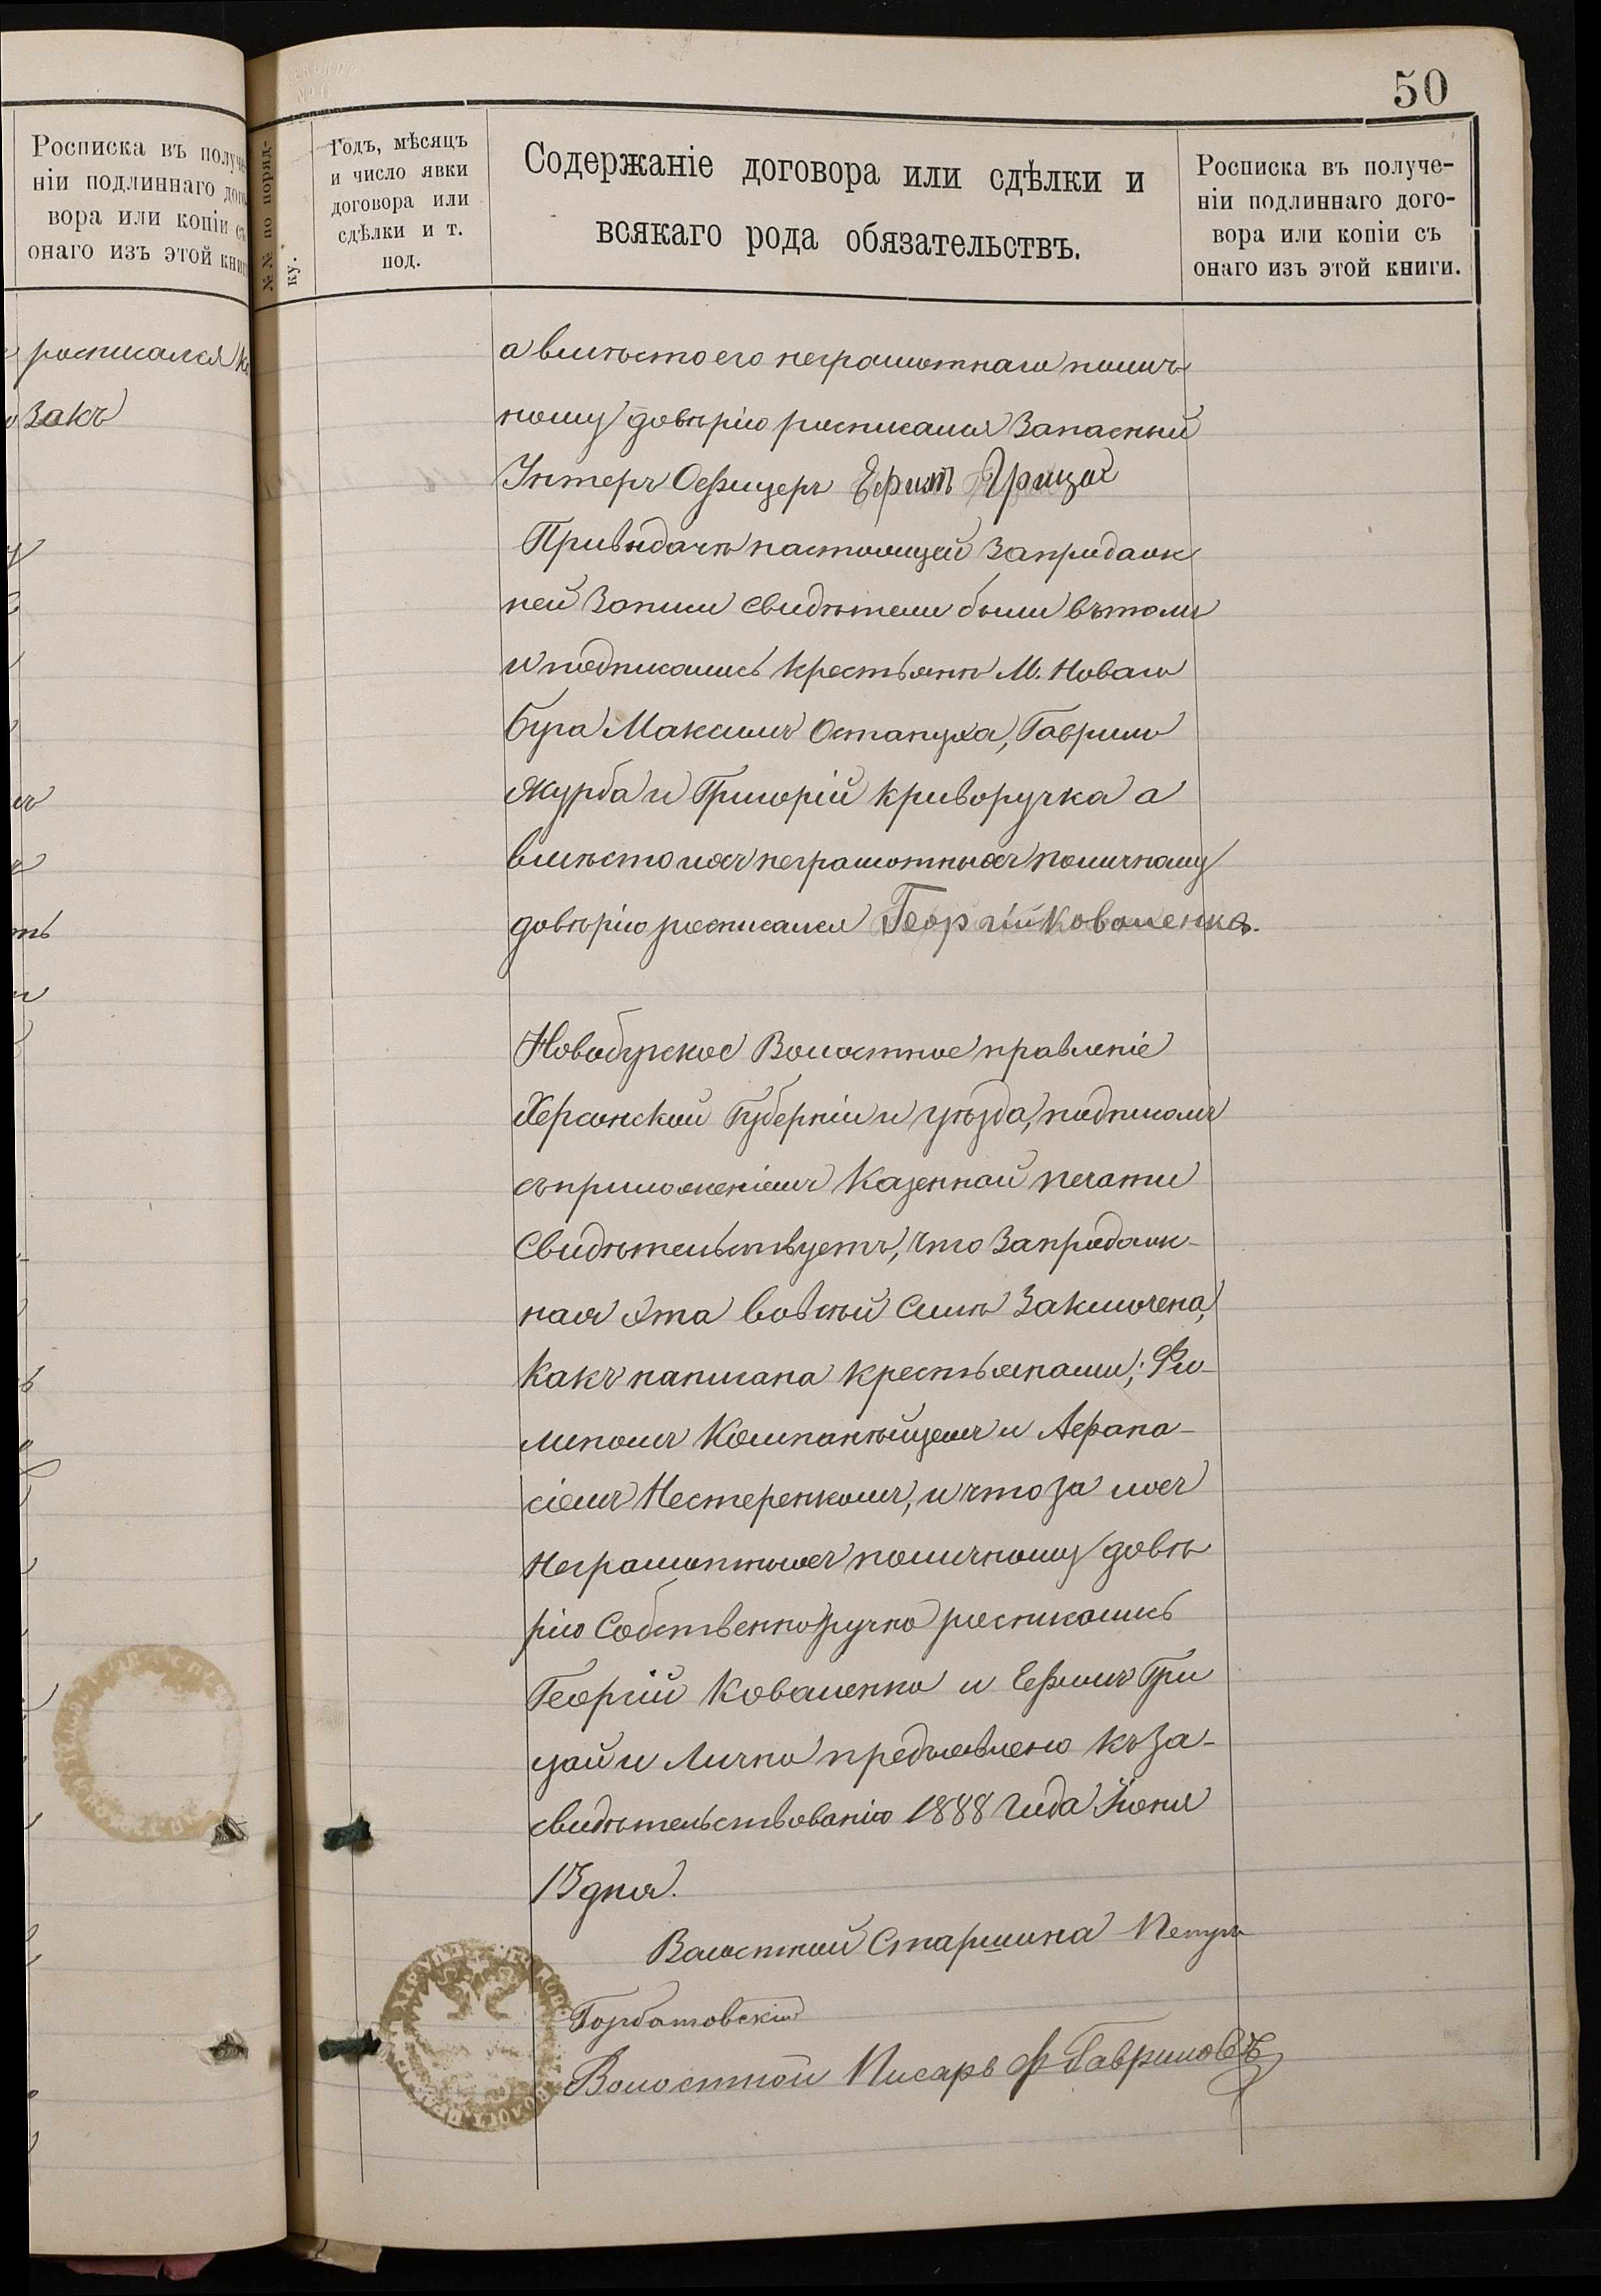 50
Росписка въ получе-
ніи подлиннаго дого-
вора или копіи съ
онаго изъ этой книг
росписался
закъ
№№ по поряд-
ку.
Годъ, мѣсяцъ
и число явки
договора или
сдѣлки и т.
под.
Содержаніе договора или сдѣлки и
всякаго рода обязательствъ.
Росписка въ получе-
ніи подлиннаго дого-
вора или копіи съ
онаго изъ этой книги.
а вмѣсто его неграмотнаго полич
ному довѣрію росписался Запасный
Унтеръ Офицеръ Ефимъ Грицай
При выдачи настоящей Запродаж
ней Записи свидѣтели были въ томъ
и подписались крестьяне М. Новаго
Буга Максимъ Остапуха, Гаврило
Журба и Григорій Криворучка а
вмѣсто ихъ неграмотныхъ поличному
довѣрію росписался Георгій Коваленко.
Новобугское Волостное правленіе
Херсонской Губерніи и уѣзда, подписомъ
съ приложеніемъ Казенной печати
Свидѣтельствуетъ, что Запродаж-
ная эта во всѣй Силѣ Заключена,
какъ написана крестьянами; Фи-
липомъ Компанѣйцемъ и Афана-
сіемъ Нестеренкомъ, и что за ихъ
Неграмотныхъ поличному довѣ
рію Собственноручно росписались
Георгій Коваленко и Ефимъ Гри
цай и Лично предъявлено къ за-
свидѣтельствованію 1888 Года Іюня
15 дня.
Волостной Старшина Петръ
Горбатовскій
Волостной Писарь Ф Гавриловъ